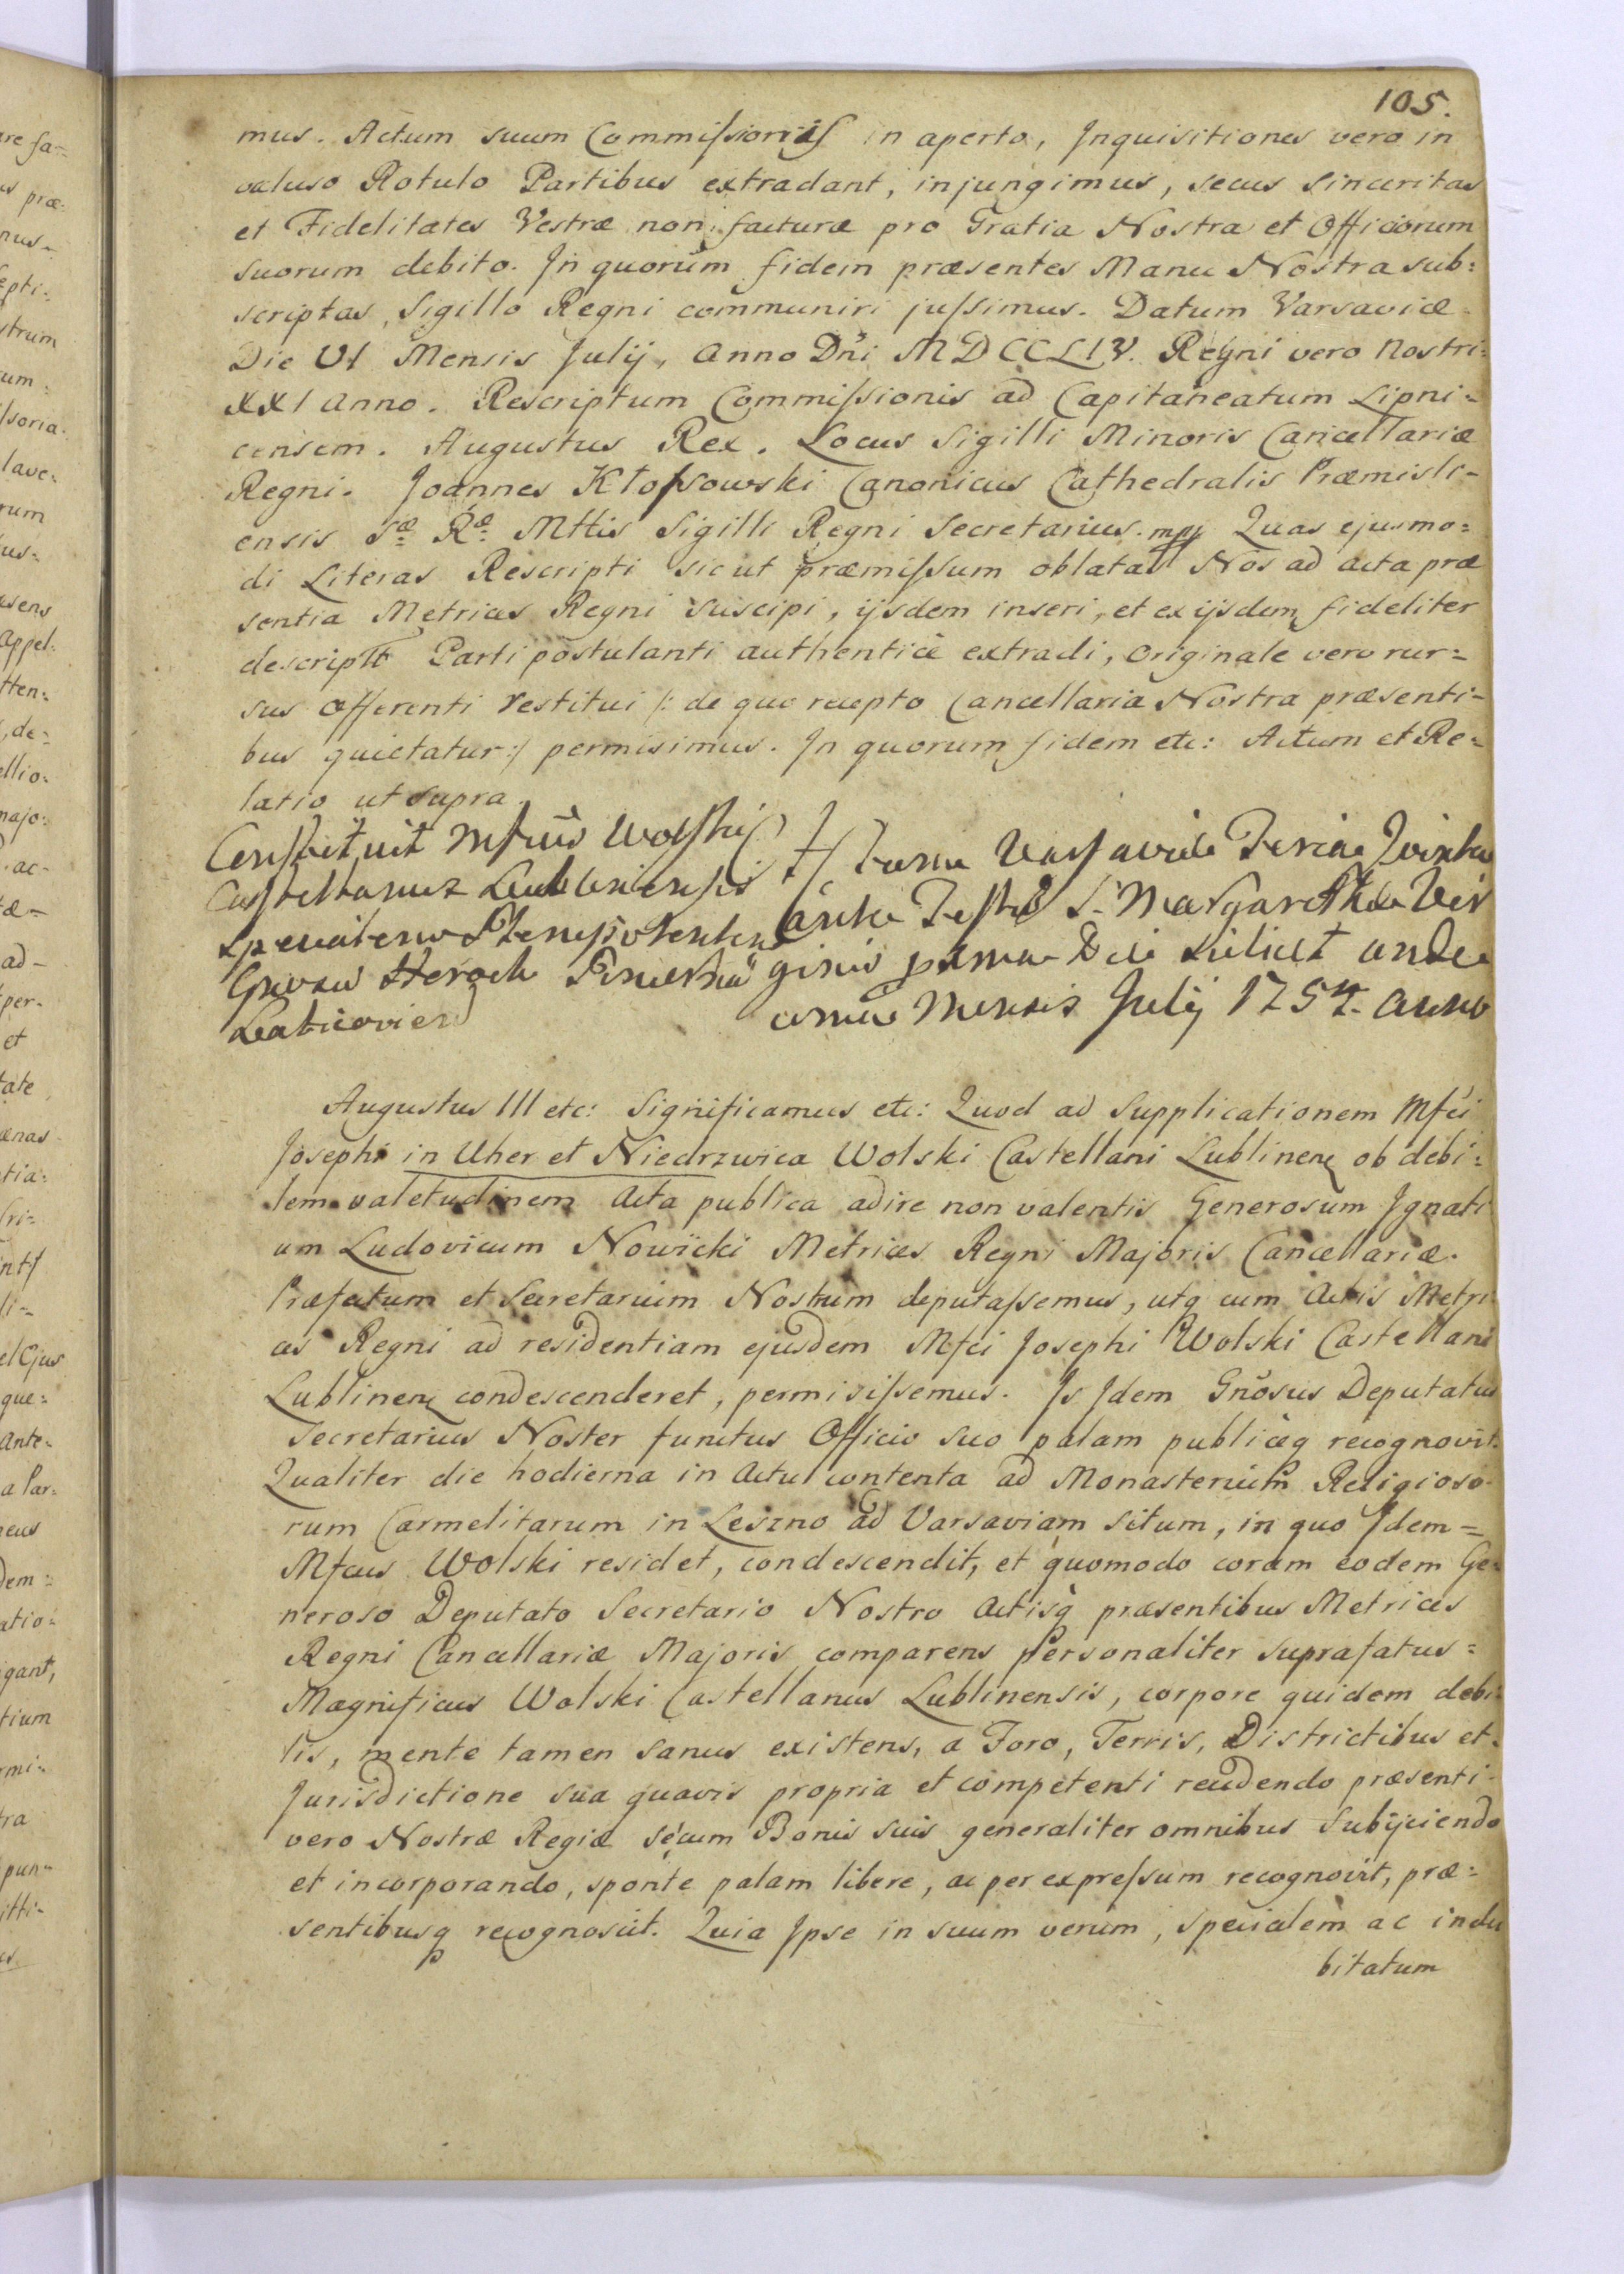 105.
mus. Actum suum Commissionis in aperto, Inquisitiones vero in
clauso Rotulo Partibus extradant, injungimus, secus Sinceritas
et Fidelitates Vestræ non facturæ pro Gratia Nostra et Officiorum
suorum debito. In quorum fidem præsentes Manu Nostra sub=
scriptas, Sigillo Regni communiri jussimus. Datum Varsaviæ
Die VI Mensis Julij, Anno Dni MDCCLIV. Regni vero Nostri
XXI Anno. Rescriptum Commissionis ad Capitaneatum Lipni=
censem. Augustus Rex. Locus Sigilli Minoris Cancellariæ
Regni. Joannes Kłossowski Canonicus Cathedralis Præmisli-
ensis Sæ Ræ Mttis Sigilli Regni Secretarius. mpp Quas ejusmo=
di Literas Rescripti sicut præmissum oblatas Nos ad acta præ
sentia Metrices Regni suscipi, ijsdem inseri, et ex ijsdem fideliter
descriptt Parti postulanti authentice extradi, originale vero rur=
sus offerenti restitui /: de quo recepto Cancellaria Nostra præsenti-
bus quietatur :/ permisimus. In quorum fidem etc: Actum et Re-
latio ut supra.
Constituit Mfcus Wolski
Castellanus Lublinensis
Plenipotentem
Actum Varsaviæ Feria
ante Festum S. Margarethæ Vir
ginis Die scilicet unde
Mensis Julij 1754. anno
Augustus III etc: Significamus etc: Quod ad Supplicationem Mfci
Josephi in Uher et Niedrzwica Wolski Castellani Lublinen ob debi=
lem valetudinem Acta publica adire non valentis Generosum Ignati
um Ludovicum Nowicki Metrices Regni Majoris Cancellariæ
Præfectum et Secretarium Nostrum deputassemus, utq cum Actis Metri
ces Regni ad residentiam ejusdem Mfci Josephi Wolski Castellani
Lublinen condescenderet, permisissemus. Is Idem Gnosus Deputatus
Secretarius Noster functus Officio suo palam publiceq recognovit.
Qualiter die hodierna in Actu contenta ad Monasterium Religioso-
rum Carmelitarum in Leszno ad Varsaviam situm, in quo Idem=
Mfcus Wolski residet, condescendit, et quomodo coram eodem Ge-
neroso Deputato Secretario Nostro Actisq præsentibus Metrices
Regni Cancellariæ Majoris comparens personaliter suprafatus=
Magnificus Wolski Castellanus Lublinensis, corpore quidem debi=
lis, mente tamen sanus existens, a Foro, Terris, Districtibus et
Jurisdictione sua quavis propria et competenti recedendo præsenti
vero Nostræ Regiæ secum Bonis suis generaliter omnibus subijciendo
et incorporando, sponte palam libere, ac per expressum recognovit, præ=
sentibusq recognoscit. Quia Ipse in suum verum, specialem ac indu
bitatum